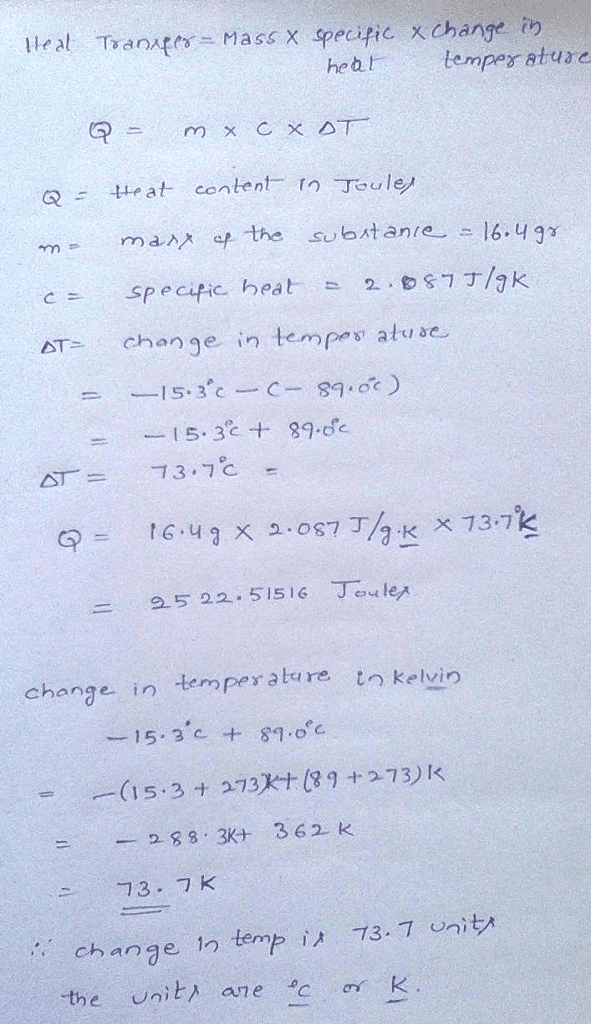 Heat Transfer = Mass x specific x change in
heat temperature
Q = m x c x ΔT
Q = Heat content in Joules
m = mass of the substance = 16.4 gr
c = specific heat = 2.087 J/gK
ΔT = change in temperature
= -15.3°c - (- 89.0°c)
= -15.3°c + 89.0°c
ΔT = 73.7°c =
Q = 16.4 g x 2.087 J/g.K x 73.7°K
= 2522.51516 Joules
change in temperature in kelvin
-15.3°c + 89.0°c
= -(15.3 + 273)K + (89 + 273) K
= - 288.3K + 362 K
= 73.7 K
∴ change in temp is 73.7 units
the units are °c or K.